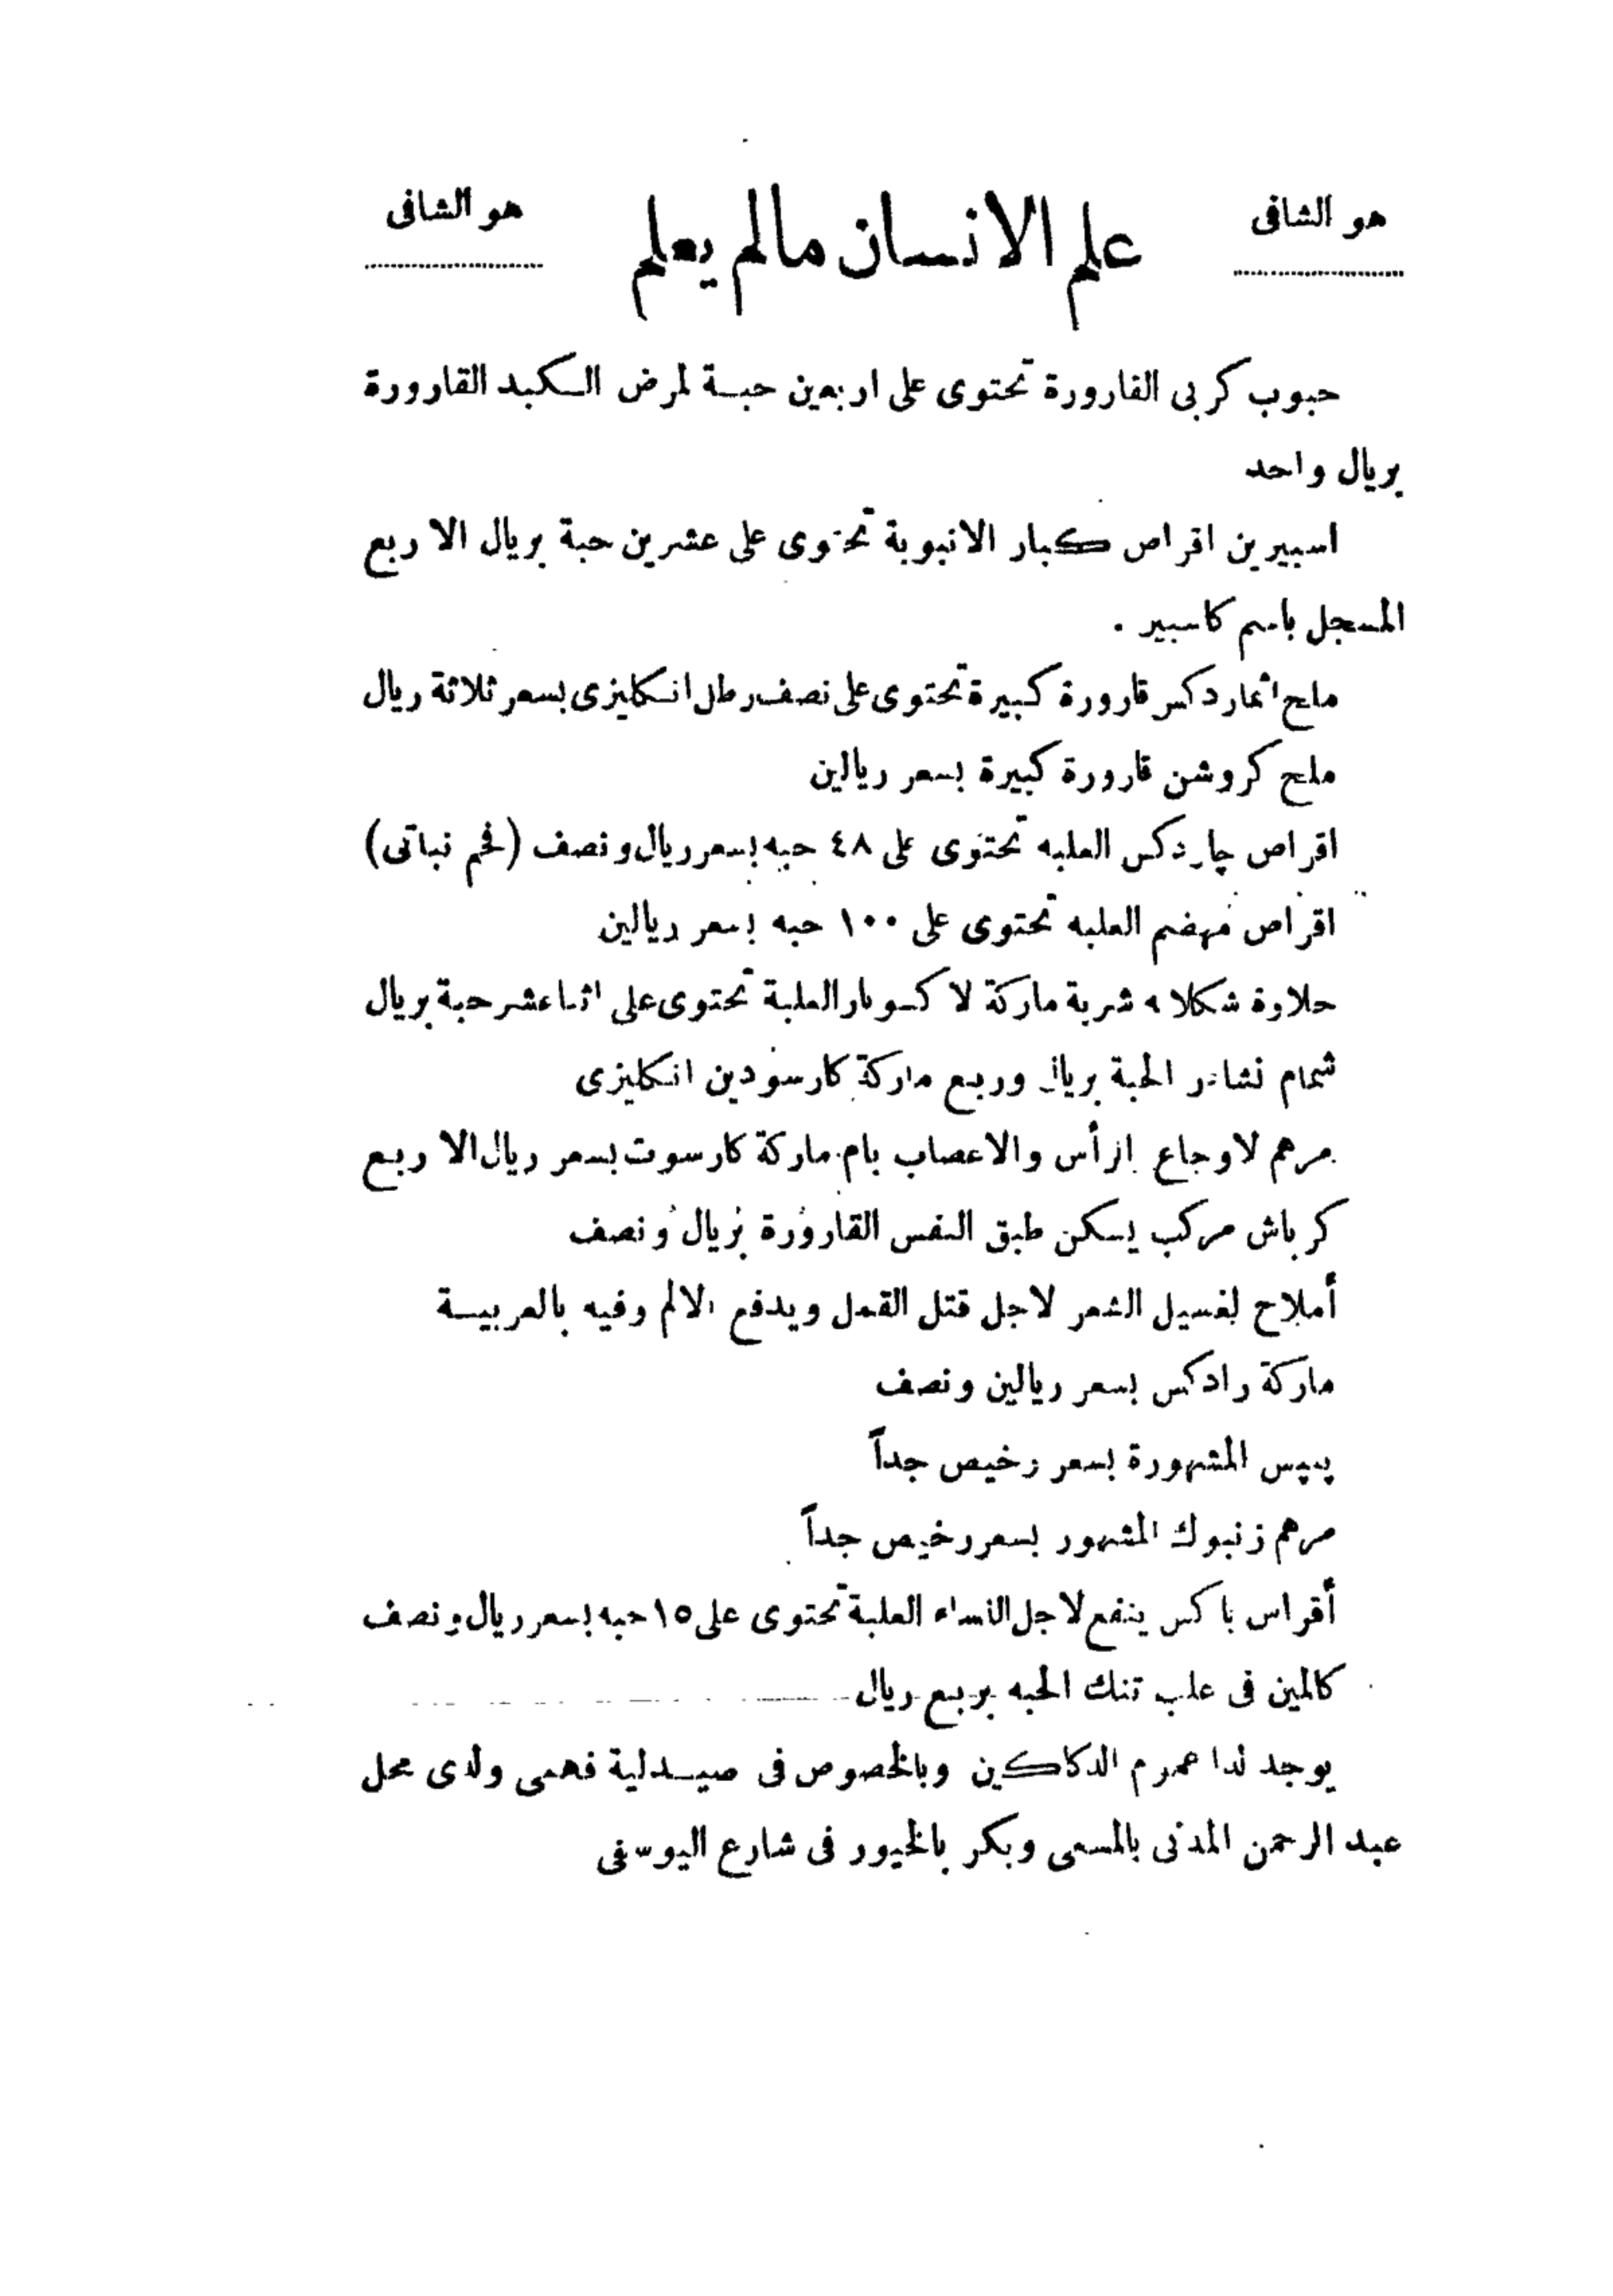 هو الشافى
علم الانسان مالم يعلم
هو الشافى
حبوب كربى القارورة تحتوى على اربعين حبة لمرض الكبد القارورة
بريال واحد
اسبيرين اقراص كبار الانبوبة تحتوى على عشرين حبة بريال الا ربع
المسجل باسم كاسبير .
ملح اثمار دكس قارورة كبيرة تحتوى على نصف رطل انكليزى بسعر ثلاثة ريال
ملح كروشن قارورة كبيرة بسعر ريالين
اقراص چاردكس العلبه تحتوى على ٤٨ حبه بسعر ريال ونصف (فحم نباتى)
اقراص مهضم العلبه تحتوى على ١٠٠ حبه بسعر ريالين
حلاوة شكلاته شربة ماركة لا كسوبار العلبة تحتوى على اثنا عشر حبة بريال
شمام نشادر الحبة بريال وربع ماركة كارسودين انكليزى
مرهم لاوجاع الرأس والاعصاب بام ماركة كارسوت بسعر ريال الا ربع
كرباش مركب يسكن طبق النفس القارورة بريال ونصف
أملاح لغسيل الشعر لاجل قتل القمل ويدفع الالم وفيه بالعربيـة
ماركة رادكس بسعر ريالين ونصف
پيپس المشهورة بسعر رخيص جداً
مرهم زنبوك المشهور بسعر رخيص جداً
أقراس باكس ينفع لاجل النساء العلبة تحتوى على ١٥ حبه بسعر ريال ونصف
كالمين فى علب تنك الحبه بربع ريال
يوجد لدا عموم الدكاكين وبالخصوص فى صيدلية فهمى ولدى محل
عبد الرحمن المدنى بالمسعى وبكر بالخيور فى شارع اليوسفى